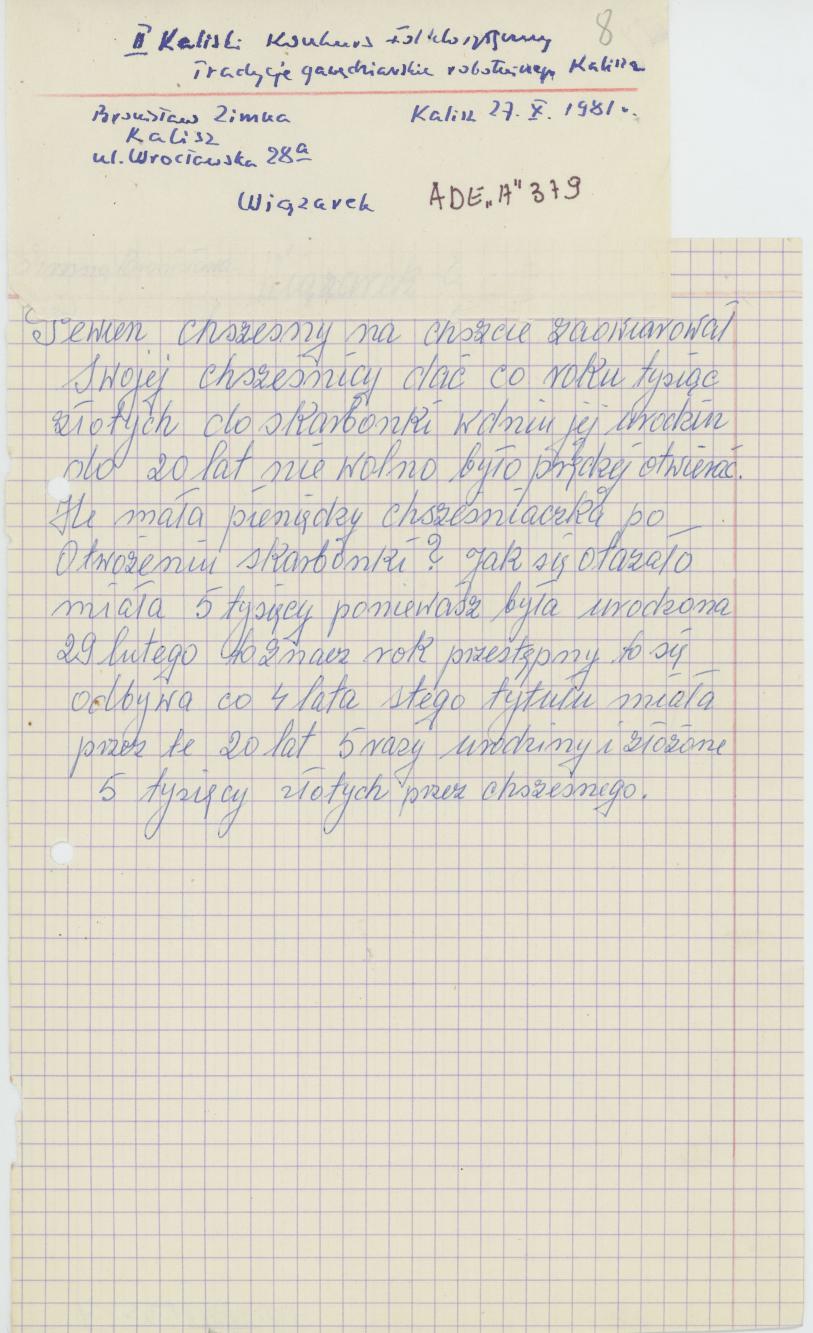 8
II Kaliski Konkurs Folklorystyczny
Tradycje gawędziarskie robotniczego Kalisza
Bronisław Zimna
Kalisz 27. X. 1981 r.
Kalisz
ul. Wrocławska 28a
Wiązarek
ADE „A" 379
Pewien chszesny na chszcie zaowiarował
Swojej chszesnicy dać co roku tysiąc
złotych do skarbonki wdniu jej urodzin
do 20 lat nie wolno było prędkej otwierać.
Ile miała pieniędzy chszesniaczka po
Otwożeniu skarbonki? Jak się okazało
miała 5 tysięcy poniewasz była urodzona
29 lutego to znacz rok przestępny to się
odbywa co 4 lata stego tytułu miała
przez te 20 lat 5 razy urodziny i złożone
5 tysięcy złotych przez chszesnego.